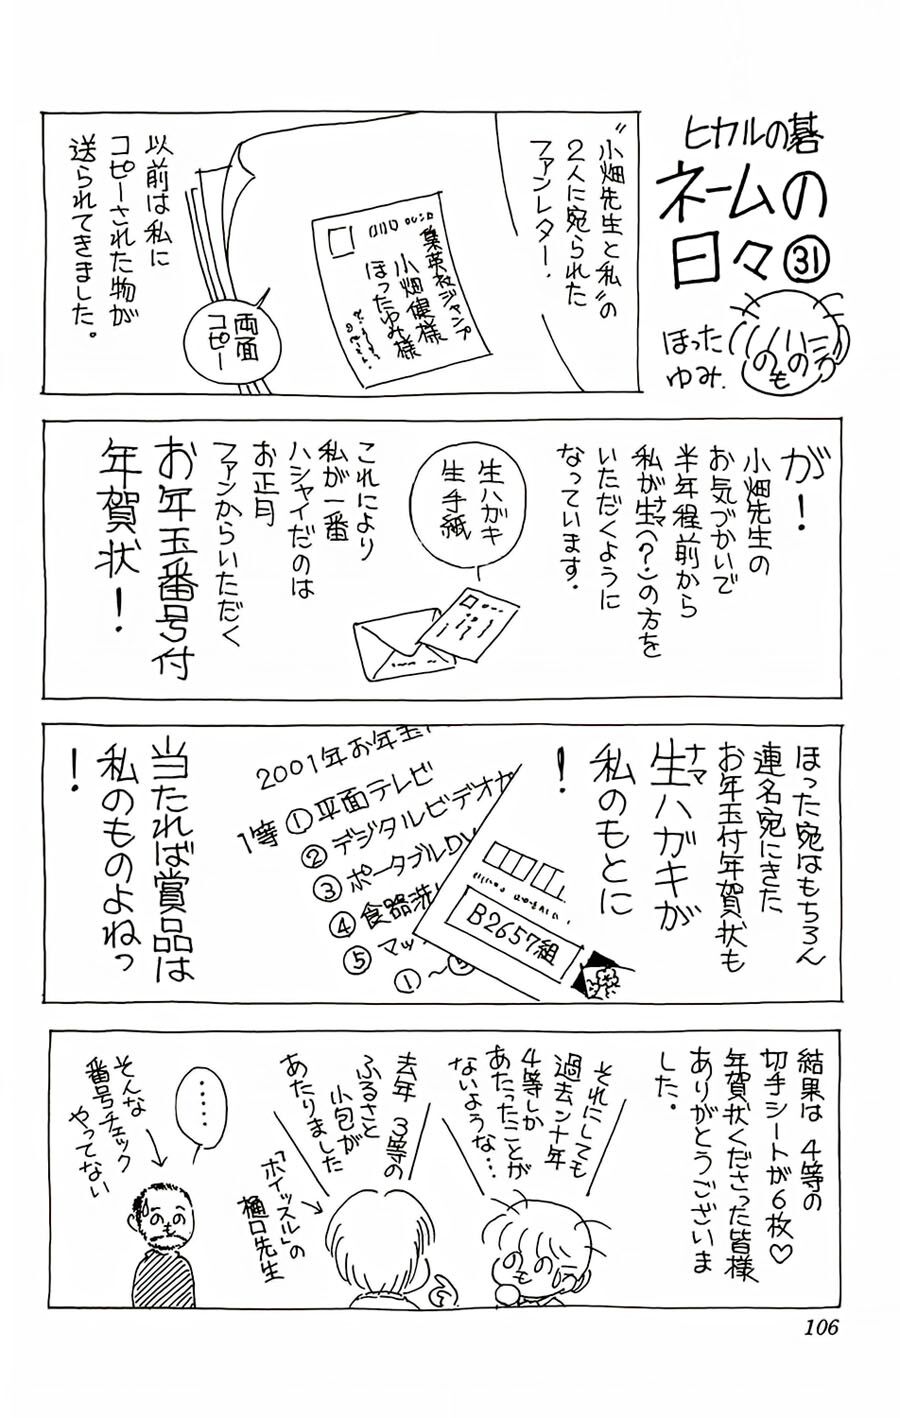 ヒカルの碁
ネームの
日々㉛
ほった
ゆみ.
〝小畑先生と私〟の
2人に宛られた
ファンレター.
集英社ジャンプ
小畑健様
ほったゆみ様
両面
コピー
以前は私に
コピーされた物が
送られてきました。
が!
小畑先生の
お気づかいで
半年程前から
私が生(ナマ)(?)の方を
いただくように
なっています.
生ハガキ
生手紙
これにより
私が一番
ハシャイだのは
お正月
ファンからいただく
お年玉番号付
年賀状!
ほった宛はもちろん
連名宛にきた
お年玉付年賀状も
生(ナマ)ハガキが
私のもとに
!
2001年お年玉
1等①平面テレビ
②デジタルビデオカ
③ポータブルDV
④食器洗い
⑤マッ
①〜⑤
B2657組
当たれば賞品は
私のものよねっ
!
結果は 4等の
切手シートが6枚♡
年賀状くださった皆様
ありがとうございま
した.
それにしても
過去ン十年
4等しか
あたったことが
ないような…
去年 3等の
ふるさと
小包が
あたりました
「ホイッスル」の
樋口先生
.....
そんな
番号チェック
やってない
106